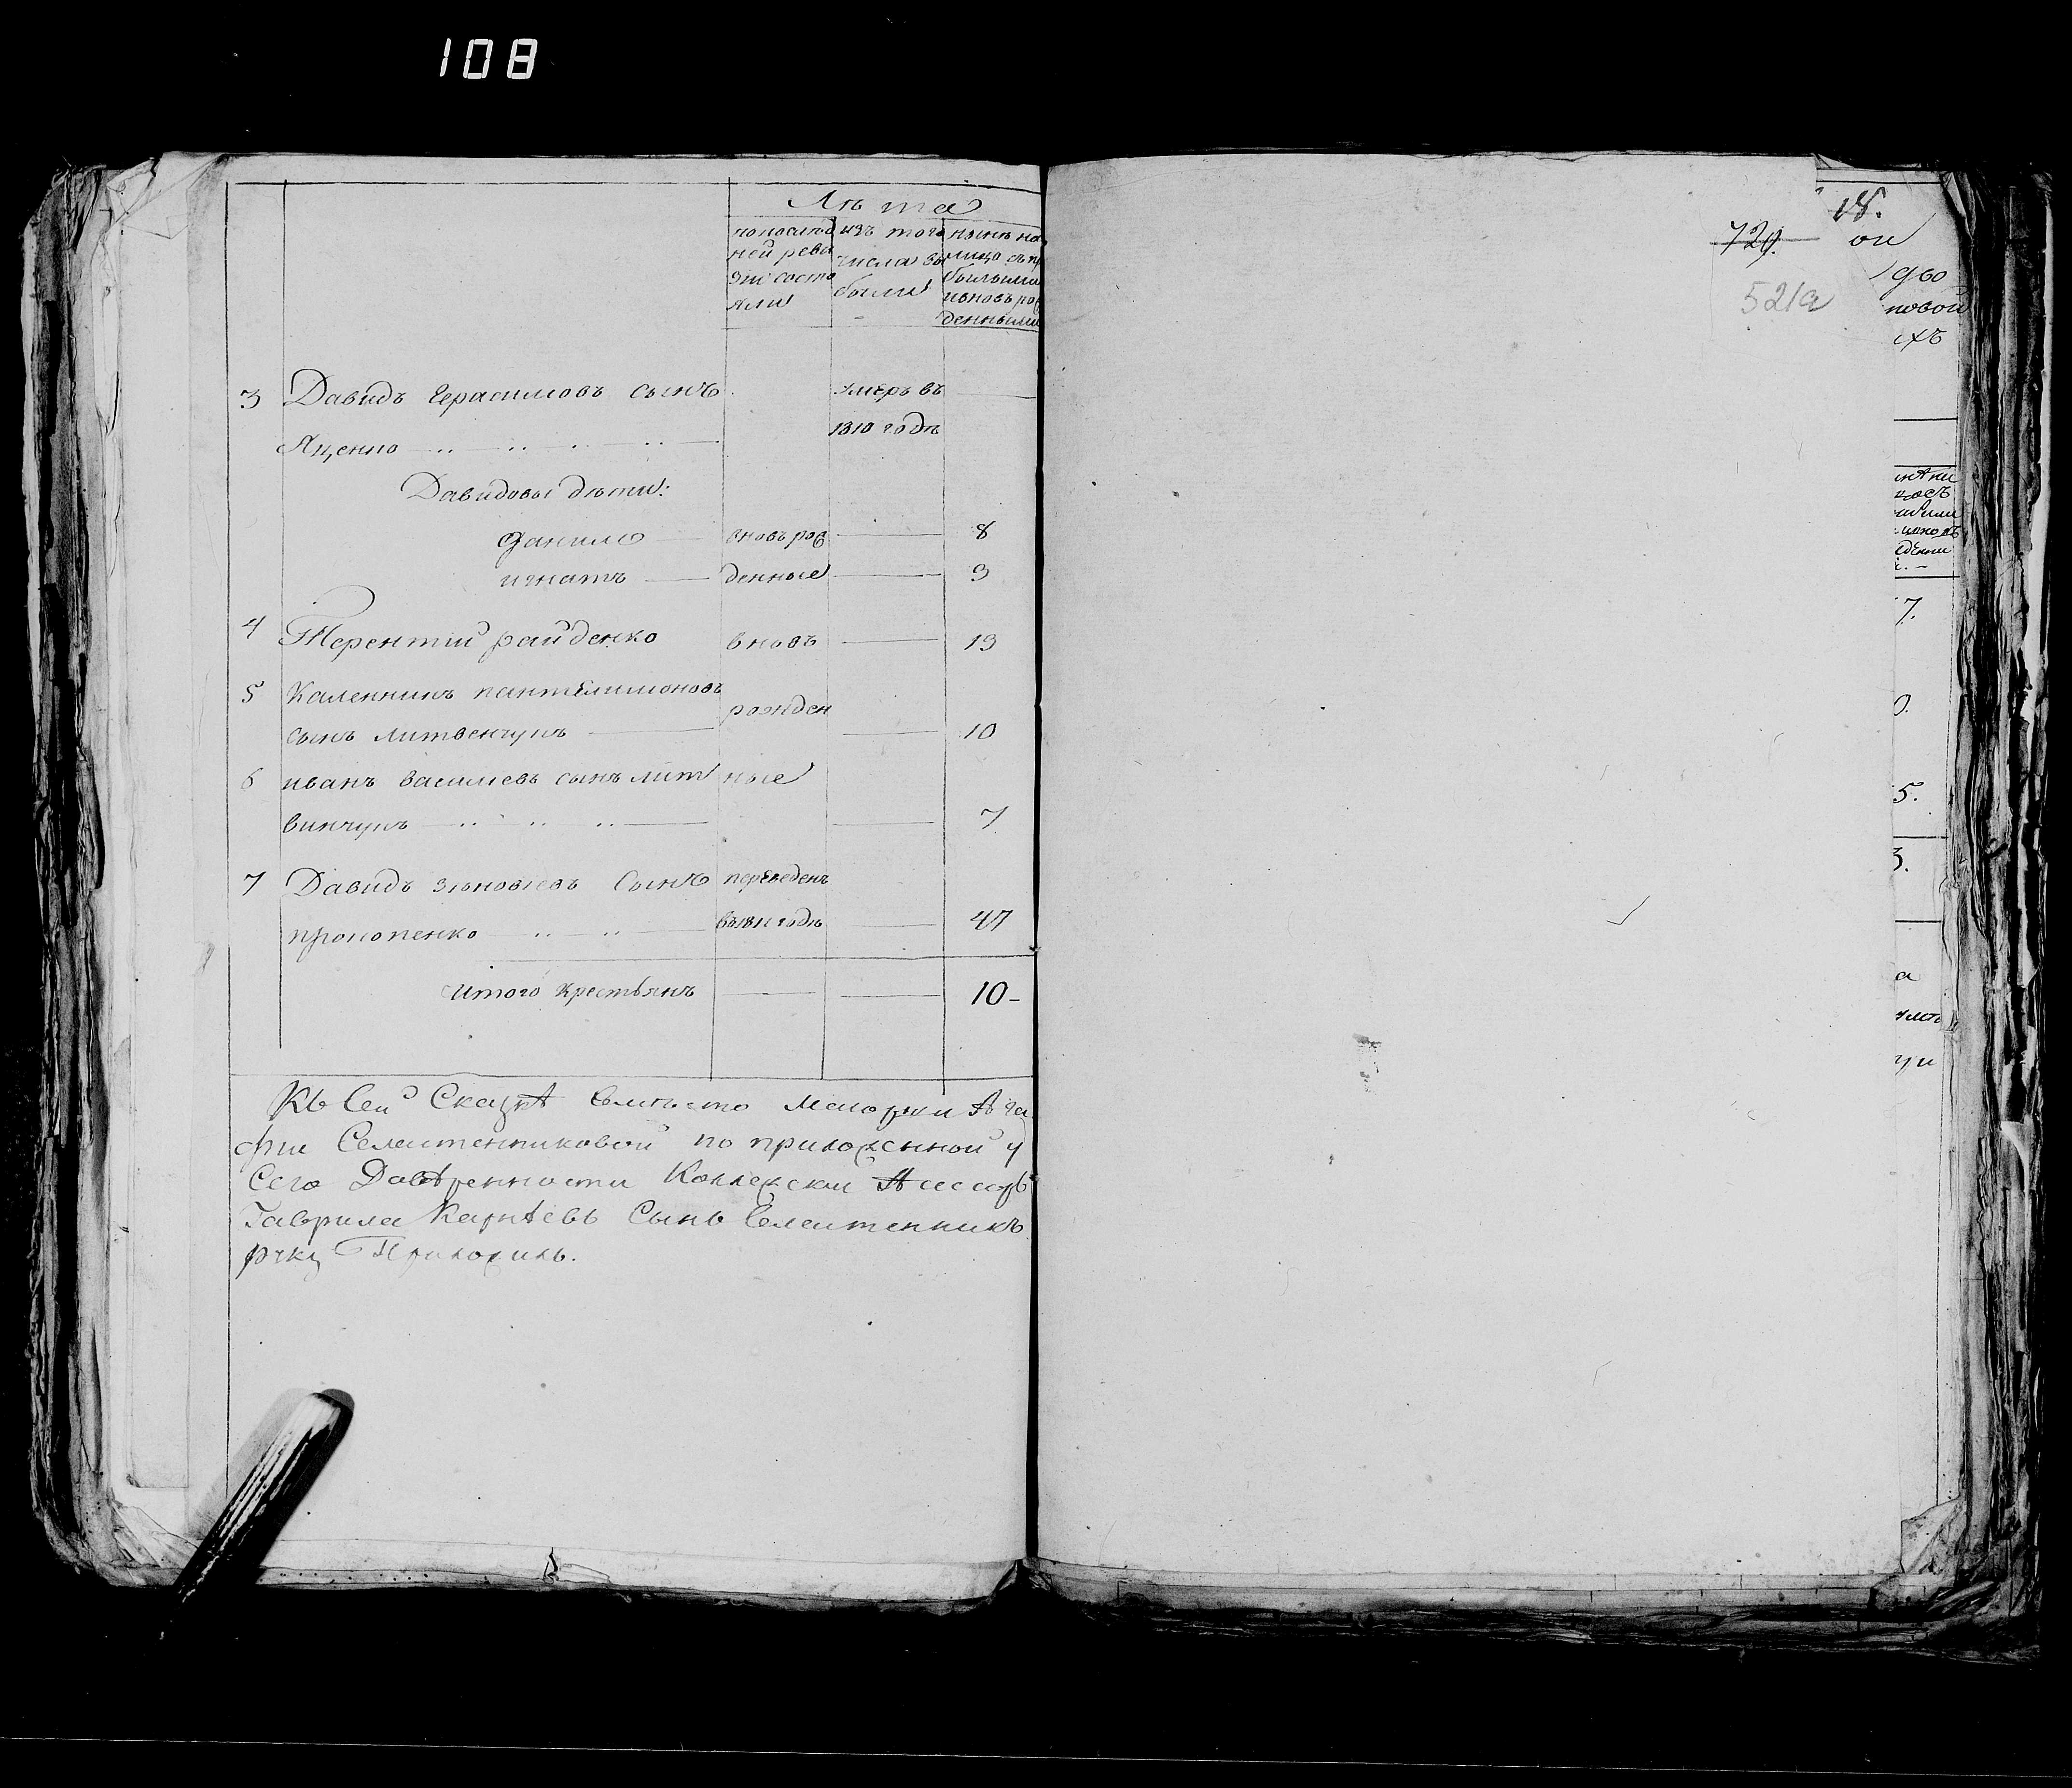 108
Лѣта
попослѣд
ней реви
зіи состо
яли
изъ того
числа вы
были
нынѣ на
лицо съ пр
былыми
ивновь рож
денными
3 Давидъ Герасимовъ сынъ
умеръ въ
Яценко
1810 годѣ
Давидовы дѣти:
Данило вновь рож 8
игнатъ денные 3
4 Терентий райденко вновь 13
5 Каленникъ пантелимоновъ
рожден
сынъ литвенчукъ 10
6 иванъ василіевъ сынъ лит ные
винчукъ 7
7 Давидъ зѣновіевъ Сынъ переведенъ
прокопенко въ1811 годѣ 47
Итого крестьянъ 10-
Къ Сей Сказкѣ вмѣсто Маіорши Ага
фіи Селитенниковой по приложенной у
Сего Довѣренности Коллежскій Ассесоръ
Гаврила Карпѣевъ Сынъ Селитенникъ
руку Приложилъ.
729.
521а
18.
ои
дво
повой
ихъ
7.
0.
5.
3.
а